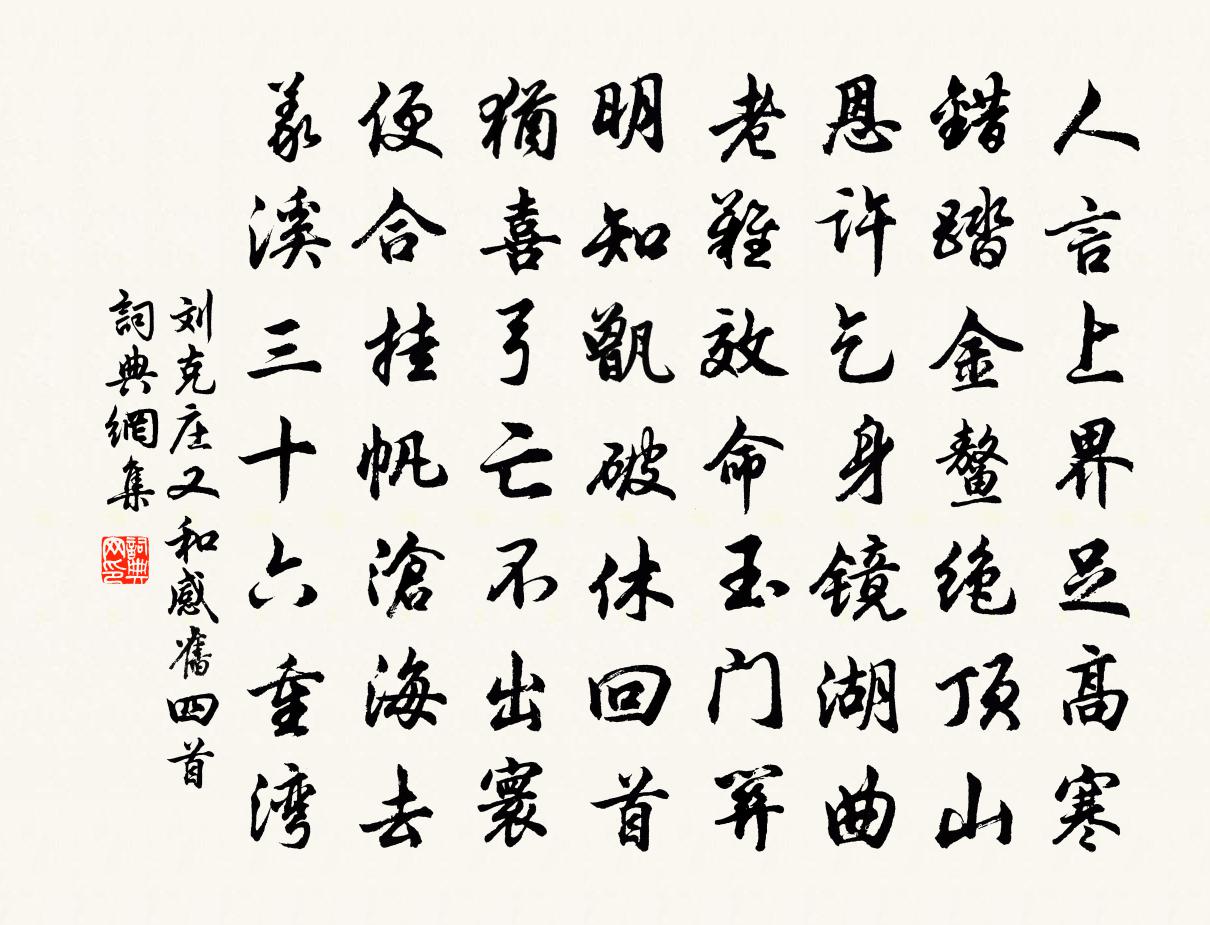 人言上界足高寒
錯踏金鳌绝顶山
恩许乞身镜湖曲
老难效命玉门關
明知甑破休回首
猶喜弓亡不出寰
便合挂帆滄海去
羕溪三十六重湾
刘克庄又和感舊四首
詞典網集
詞典网印